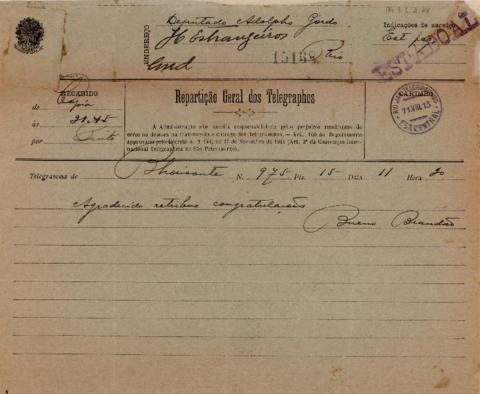 Deputado Adolpho Gordo
ENDEREÇO
H Estrangeiros
15188
Rio
Indicações de serviço
ESTADOAL
RECEBIDO
de
ás 21.45
por
Repartição Geral dos Telegraphos
A Administração não aceita responsabilidade pelos prejuizos resultantes de
erros ou demoras na transmissão e entrega dos telegrammas. — Art. 160 do Regulamento
approvado pelo Decreto n. 9.148, de 27 de Novembro de 1911 (Art. 3º da Convenção Inter-
nacional Telegraphica de São Petersburgo).
CARIMBO
11.VIII.13
Telegramma de Bhorisonte N. 975 Pls. 15 Data 11 Hora 20
Agradecido retribuo congratulações
Bueno Brandão